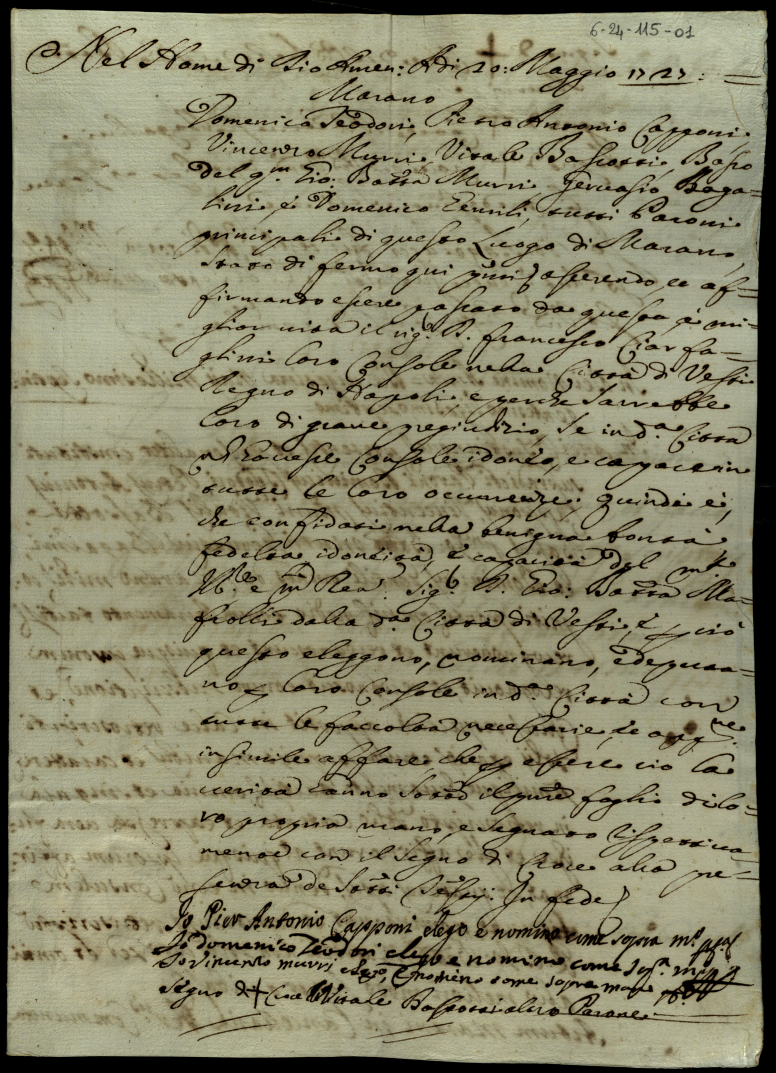 6-24-115-01
Nel Nome di Dio Amen: A di 20: Maggio 1727:
Marano
Domenico Teodori, Pietro Antonio Capponi
Vincenzo Murri, Vitale Bastossi
del qm Gio: Batta Murri Gervasio Baga=
lini, e Domenico tutti Paroni
principali di questo Luogo di Marano
Stato di fermo qui asserendo, et af=
firmando essere passato da questa, a mi=
glior vita il sig. D. francesco Ciarfa=
glini loro Console nella Città di Vesti
Regno di Napoli, e perche sarrebbe
loro di grave pregiudizio, se in da Città
Console idoneo, e capace in
tutte le loro occurrenze; quindi è,
che confidati nella benigna bontà
fedeltà idoneità, e capacità del
e Revd. Sig. D. Gio: Batta Ma=
frolli dalla da Città di Vesti, e p ciò
questo eleggono, nominano, e deputa=
no p loro Console in da Città con
tutte le faccoltà necessarie, et
in simile affare che p essere ciò la
verità hanno il foglio di lo=
ro propria mano, e segnato rispettiva=
mente con il segno di Croce alla pre=
senza de In fede
Io Pier Antonio Capponi elego e nomino come sopra mo ppa
Io domenico Teodori elego e nomino come sopa mo pp
Io vincenzo murri elego, e nomino come sopra mano pp
Segno di + Croce di Vitale Bastossi altro Parone